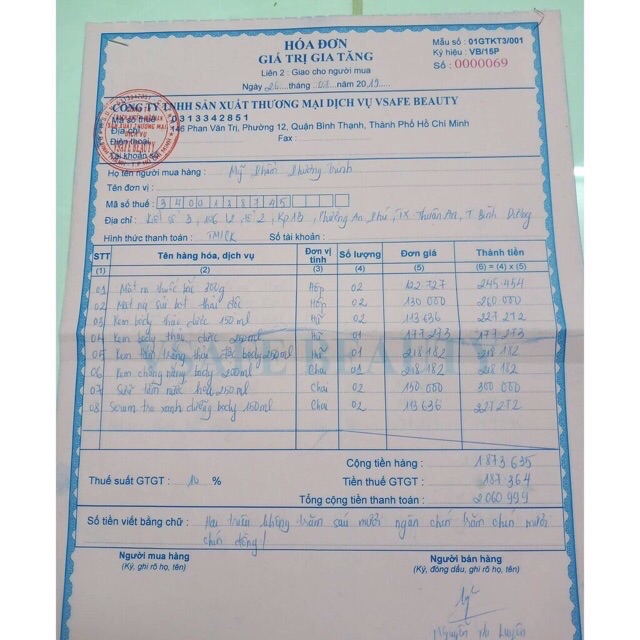 HÓA ĐƠN
GIÁ TRỊ GIA TĂNG
Liên 2 : Giao cho người mua
Ngày 26 tháng năm 2019
Mẫu số : 01GTKT3/001
Ký hiệu : VB/15P
Số : 0000069
CÔNG TY TNHH SẢN XUẤT THƯƠNG MẠI DỊCH VỤ VSAFE BEAUTY
Mã số thuế 0313342851
Địa chỉ 146 Phan Văn Trị, Phường 12, Quận Bình Thạnh, Thành Phố Hồ Chí Minh
Điện thoại Fax :
Tài khoản số
VSAFE BEAUTY
Họ tên người mua hàng : Mỹ Phẩm Phương Trinh
Tên đơn vị :
Mã số thuế : 3400138745
Địa chỉ : 3, 2, Kp 1B, Phường An Phú, TX Thuận An, T Bình Dương
Hình thức thanh toán : TM/CK Số tài khoản :
STT Tên hàng hóa, dịch vụ Đơn vị tính Số lượng Đơn giá Thành tiền
(1) (2) (3) (4) (5) (6) = (4) x (5)
01 Mặt nạ thuốc bắc 300g Hộp 02 122 727 245.454
02 Mặt nạ sủi bọt thải độc Hộp 02 130 000 260 000
03 Kem body thảo dược 150ml Hũ 02 113 636 227 272
04 Kem body thảo dược 250ml Hũ 01 177 273 177 273
05 Kem tắm trắng body 250ml Hũ 01 218 182 218 182
06 Kem chống nắng body 200ml Chai 01 218 182 218 182
07 Sữa tắm nước hoa 250ml Chai 02 150 000 300 000
08 Serum tra xanh dưỡng body 150ml Chai 02 113 636 227 272
VSAFE BEAUTY
Cộng tiền hàng : 1.873 635
Thuế suất GTGT : 10 % Tiền thuế GTGT : 187.364
Tổng cộng tiền thanh toán : 2 060 999
Số tiền viết bằng chữ : Hai triệu không trăm sáu mươi ngàn chín trăm chín mươi
chín đồng /
Người mua hàng Người bán hàng
(Ký, ghi rõ họ, tên) (Ký, đóng dấu, ghi rõ họ, tên)
Nguyễn Luyến